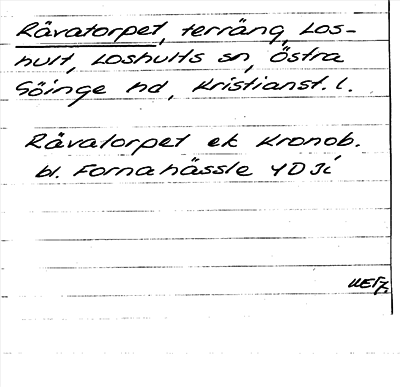 Rävatorpet, terräng, Los-
hult, Loshults sn, Östra
Göinge hd, Kristianst. l.
Rävatorpet ek Kronob.
bl. Fornahässle 4D 3i